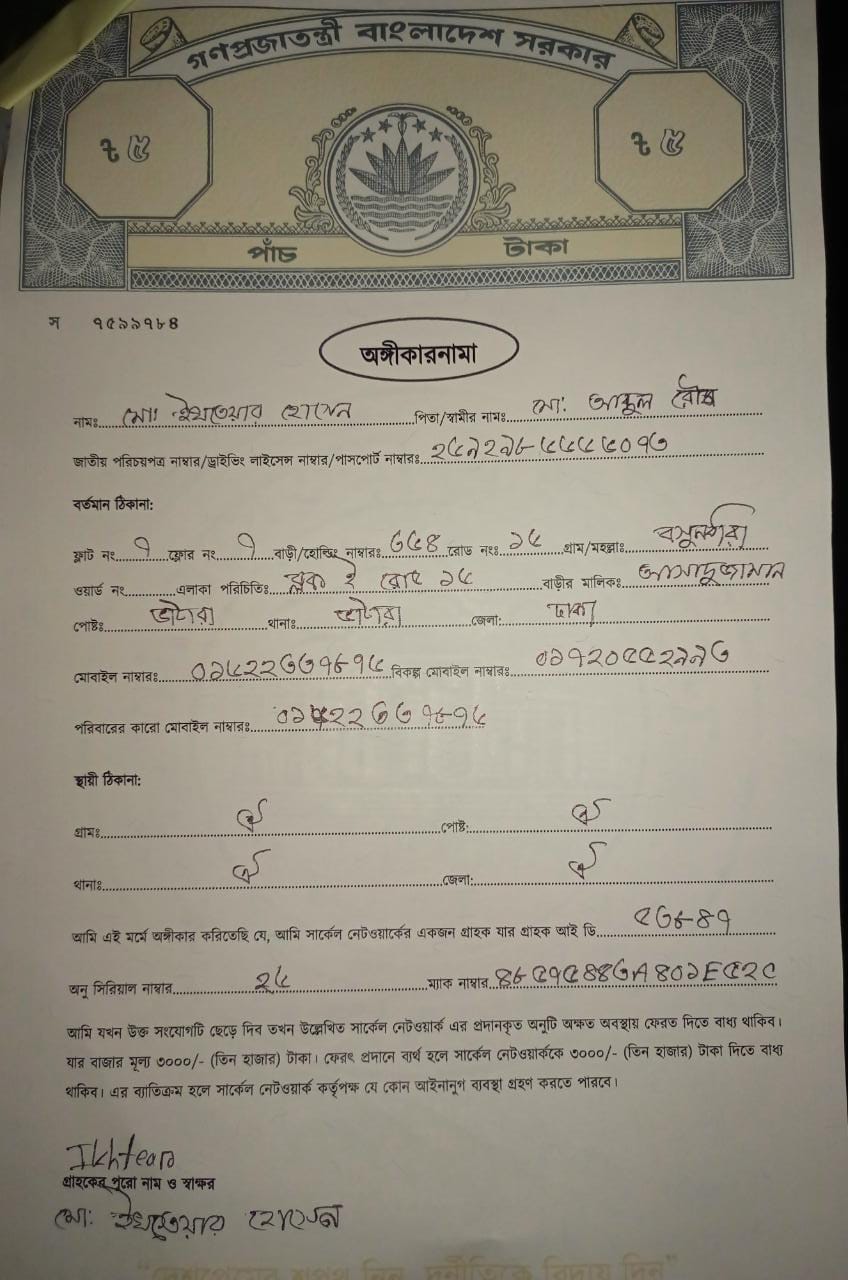 গণপ্রজাতন্ত্রী বাংলাদেশ সরকার
৳ ৫ ৳ ৫
পাঁচ টাকা
স ৭৫৯৯৭৮৪
অঙ্গীকারনামা
নামঃ মোঃ ইখতেয়ার হোসেন পিতা/স্বামীর নামঃ মো:
জাতীয় পরিচয়পত্র নাম্বার/ড্রাইভিং লাইসেন্স নাম্বার/পাসপোর্ট নাম্বারঃ
বর্তমান ঠিকানা:
ফ্লাট নং ৭ ফ্লোর নং ৭ বাড়ী/হোল্ডিং নাম্বারঃ ৩৬৪ রোড নংঃ ১৫ গ্রাম/মহল্লাঃ
ওয়ার্ড নং এলাকা পরিচিতিঃ ব্লক ই রোড ১৫ বাড়ীর মালিকঃ আসাদুজ্জামান
পোষ্টঃ ভাটারা থানাঃ ভাটারা জেলা: ঢাকা
মোবাইল নাম্বারঃ ০১৫২২৩৩৭৮৭৫ বিকল্প মোবাইল নাম্বারঃ
পরিবারের কারো মোবাইল নাম্বারঃ ০১৫২২৩৩৭৮৭৫
স্থায়ী ঠিকানা:
গ্রামঃ ঐ পোষ্ট: ঐ
থানাঃ ঐ জেলা: ঐ
আমি এই মর্মে অঙ্গীকার করিতেছি যে, আমি সার্কেল নেটওয়ার্কের একজন গ্রাহক যার গ্রাহক আই ডি ৫৩৮৪৭
অনু সিরিয়াল নাম্বার ২৫ ম্যাক নাম্বার
আমি যখন উক্ত সংযোগটি ছেড়ে দিব তখন উল্লেখিত সার্কেল নেটওয়ার্ক এর প্রদানকৃত অনুটি অক্ষত অবস্থায় ফেরত দিতে বাধ্য থাকিব।
যার বাজার মূল্য ৩০০০/- (তিন হাজার) টাকা। ফেরৎ প্রদানে ব্যর্থ হলে সার্কেল নেটওয়ার্ককে ৩০০০/- (তিন হাজার) টাকা দিতে বাধ্য
থাকিব। এর ব্যাতিক্রম হলে সার্কেল নেটওয়ার্ক কর্তৃপক্ষ যে কোন আইনানুগ ব্যবস্থা গ্রহণ করতে পারবে।
গ্রাহকের পুরো নাম ও স্বাক্ষর
মো: ইখতেয়ার হোসেন